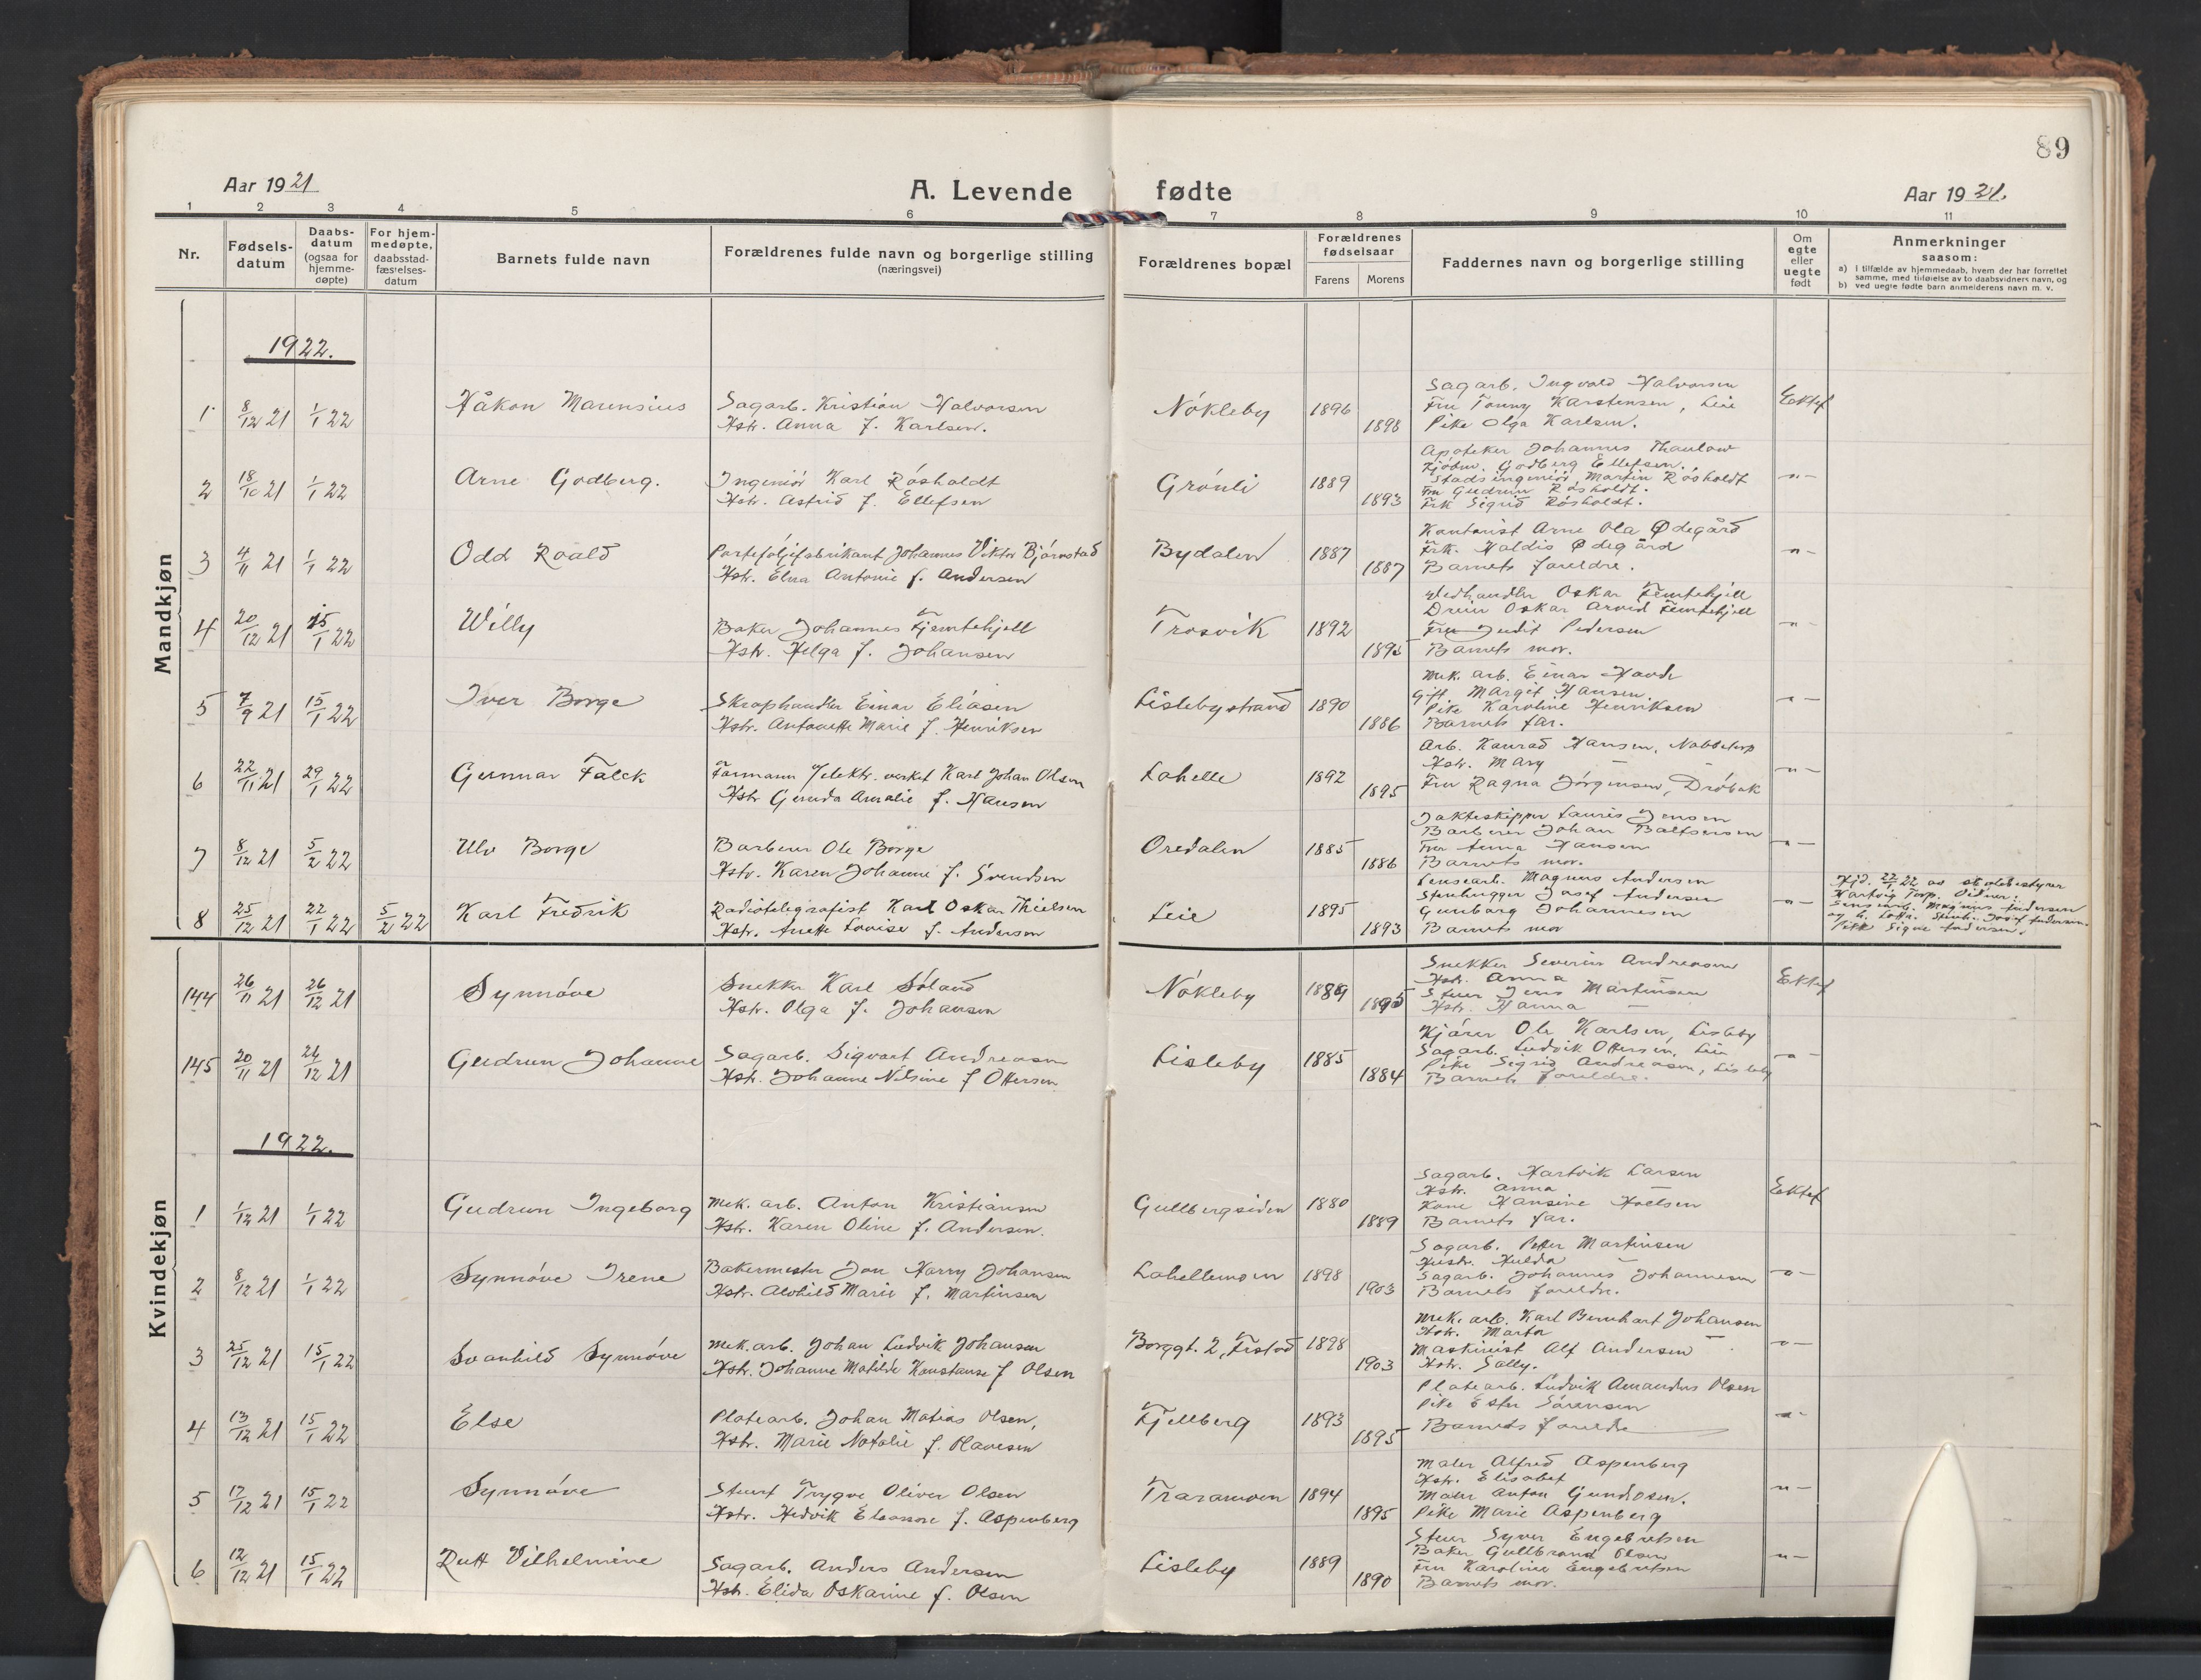 89
Aar 1921
A. Levende fødte
Aar 1921.
1 2 3 4 5 6 7 8 9 10 11
Nr.
Fødsels-
datum
Daabs-
datum
(ogsaa for
hjemme-
døpte)
For hjem-
medøpte,
daabsstad-
fæstelses-
datum
Barnets fulde navn
Forældrenes fulde navn og borgerlige stilling
(næringsvei)
Forældrenes bopæl
Forældrenes
fødselsaar
Farens Morens
Faddernes navn og borgerlige stilling
Om
egte
eller
uegte
født
Anmerkninger
saasom:
a) i tilfælde av hjemmedaab, hvem der har forrettet
samme, med tilføielse av to daabsvidners navn, og
b) ved uegte fødte barn anmelderens navn m. v.
Mandkjøn
1922.
1 8/12 21 1/1 22 Håkon Marensius
Sagarb. Kristian Halvorsen
Hstr. Anna f. Karlsen.
Nökleby 1896 1898
Sagarb. Ingvald Halvorsen
Fru Tonny Karstensen, Leie
Pike Olga Karlsen.
Ektef
2 18/10 21 1/1 22 Arne Godberg.
Ingeniör Karl Rösholdt
Hstr. Astrid f. Ellefsen
Grönli 1889 1893
Apoteker Johannes Thaulow
Kjöbm. Godberg Ellefsen.
Stadsingeniör Martin Rösholdt
Fru Gudrun Rösholdt.
Frk Sigrid Rösholdt.
-"-
3 4/11 21 1/1 22 Odd Roald
Porteföljefabrikant Johannes Viktor Bjørnstad
Hstr. Elna Antonie f. Andersen
Bydalen 1887 1887
Kontorist Arne Ola Ødegård
Frk. Haldis Ødegård
Barnets foreldre.
-"-
4 20/12 21 15/1 22 Willy
Baker Johannes Fjemtehjell
Hstr. Helga f. Johansen
Trosvik 1892 1895
Vedhandler Oskar Femtehjell
Oskar Arvid Femtehjell
Fru Judit Pedersen
Barnets mor.
-"-
5 7/9 21 15/1 22 Iver Borge
Skraphandler Einar Eliasen
Hstr. Antonette Marie f. Henriksen
Lislebystrand 1890 1886
Mek. arb. Einar
Gift Margit Hansen.
Pike Karoline Henriksen
Barnets far.
-"-
6 22/11 21 29/1 22 Gunnar Falck
Formann v/elektr. verket Karl Johan Olsen
Hstr Gerda Amalie f. Hansen
Lahelle 1892 1895
Arb. Konrad Hansen, Nabbetorp
Hstr. Mary —
Fru Ragna Jörgensen, Dröbak
-"-
7 8/12 21 5/2 22 Ulv Borge
Barberer Ole Borge
Hstr. Karen Johanne f. Svendsen
Oredalen 1885 1886
Jakteskipper Lauris Jensen
Barberer Johan Baltsersen
Fru Anna Hansen
Barnets mor.
-"-
8 25/12 21 22/1 22 5/2 22 Karl Fredrik
Radiotelegrafist Karl Oskar Thielsen
Hstr. Anette Lovise f. Andersen
Leie 1895 1893
Lensearb. Magnus Andersen
Stenhugger Josef Andersen
Gunborg Johannesen
Barnets mor
-"-
Hjd. 22/1 22 av skolebestyrer
Hartvig Torp. Vidner:
Lensearb. Magnus Andersen
Stenh. Josef Andersen.
Pike Signe Andersen.
Kvindekjøn
144 26/11 21 26/12 21 Synnöve
Snekker Karl Söland
Hstr. Olga f. Johansen
Nökleby 1889 1895
Snekker Severin Andreasen
Hstr. Anna —
Stuer Jens Martinsen
Hstr. Hanna —
Ektef
145 20/11 21 26/12 21 Gudrun Johanne
Sagarb. Sigvart Andreasen
Hstr. Johanne Nilsine f Ottersen
Lisleby 1885 1884
Kjörer Ole Karlsen, Lisleby
Sagarb. Ludvik Ottersen, Leie
Pike Sigrid Andreasen, Lisleby
Barnets foreldre.
-"-
1922.
1 1/12 21 1/1 22 Gudrun Ingeborg
Mek. arb. Anton Kristiansen
Hstr. Karen Oline f. Andersen.
Gullbergsiden 1880 1889
Sagarb. Hartvik Larsen
Hstr. Anna —
Kone Hansine Hoelsen
Barnets far.
Ektef
2 8/12 21 1/1 22 Synnöve Irene
Bakermester Jon Harry Johansen
Hstr. Alvhild Marie f. Martinsen
Lahellemoen 1898 1903
Sagarb. Petter Martinsen
Hustr. Hulda —
Sagarb. Johannes Johannesen
Barnets foreldre.
-"-
3 25/12 21 15/1 22 Svanhild Synnöve
Mek. arb. Johan Ludvik Johansen
Hstr. Johanne Matilde Konstanse f Olsen
Borggt. 2, Fr.stad 1898 1903
Mek. arb. Karl Bernhart Johansen
Hstr. Marta —
Maskinist Alf Andersen
Hstr. Sally.
-"-
4 13/12 21 15/1 22 Else
Platearb. Johan Matias Olsen,
Hstr. Marie Natalie f. Olavesen
Fjellberg 1893 1895
Platearb. Ludvik Amandus Olsen
Pike Ester Sörensen
Barnets foreldre
-"-
5 17/12 21 15/1 22 Synnöve
Stuert Trygve Oliver Olsen
Hstr. Hedvik Eleonore f. Aspenberg
Traramoen 1894 1895
Maler Alfred Aspenberg
Hstr. Elisabet
Maler Anton Gundersen.
Pike Marie Aspenberg
-"-
6 12/12 21 15/1 22 Rutt Vilhelmine
Sagarb. Anders Andersen
Hstr. Elida Oskarine f. Olsen
Lisleby 1889 1890
Stuer Syver Engebretsen
Baker Gullbrand Olsen
Fru Karoline Engebretsen
Barnets mor.
-"-